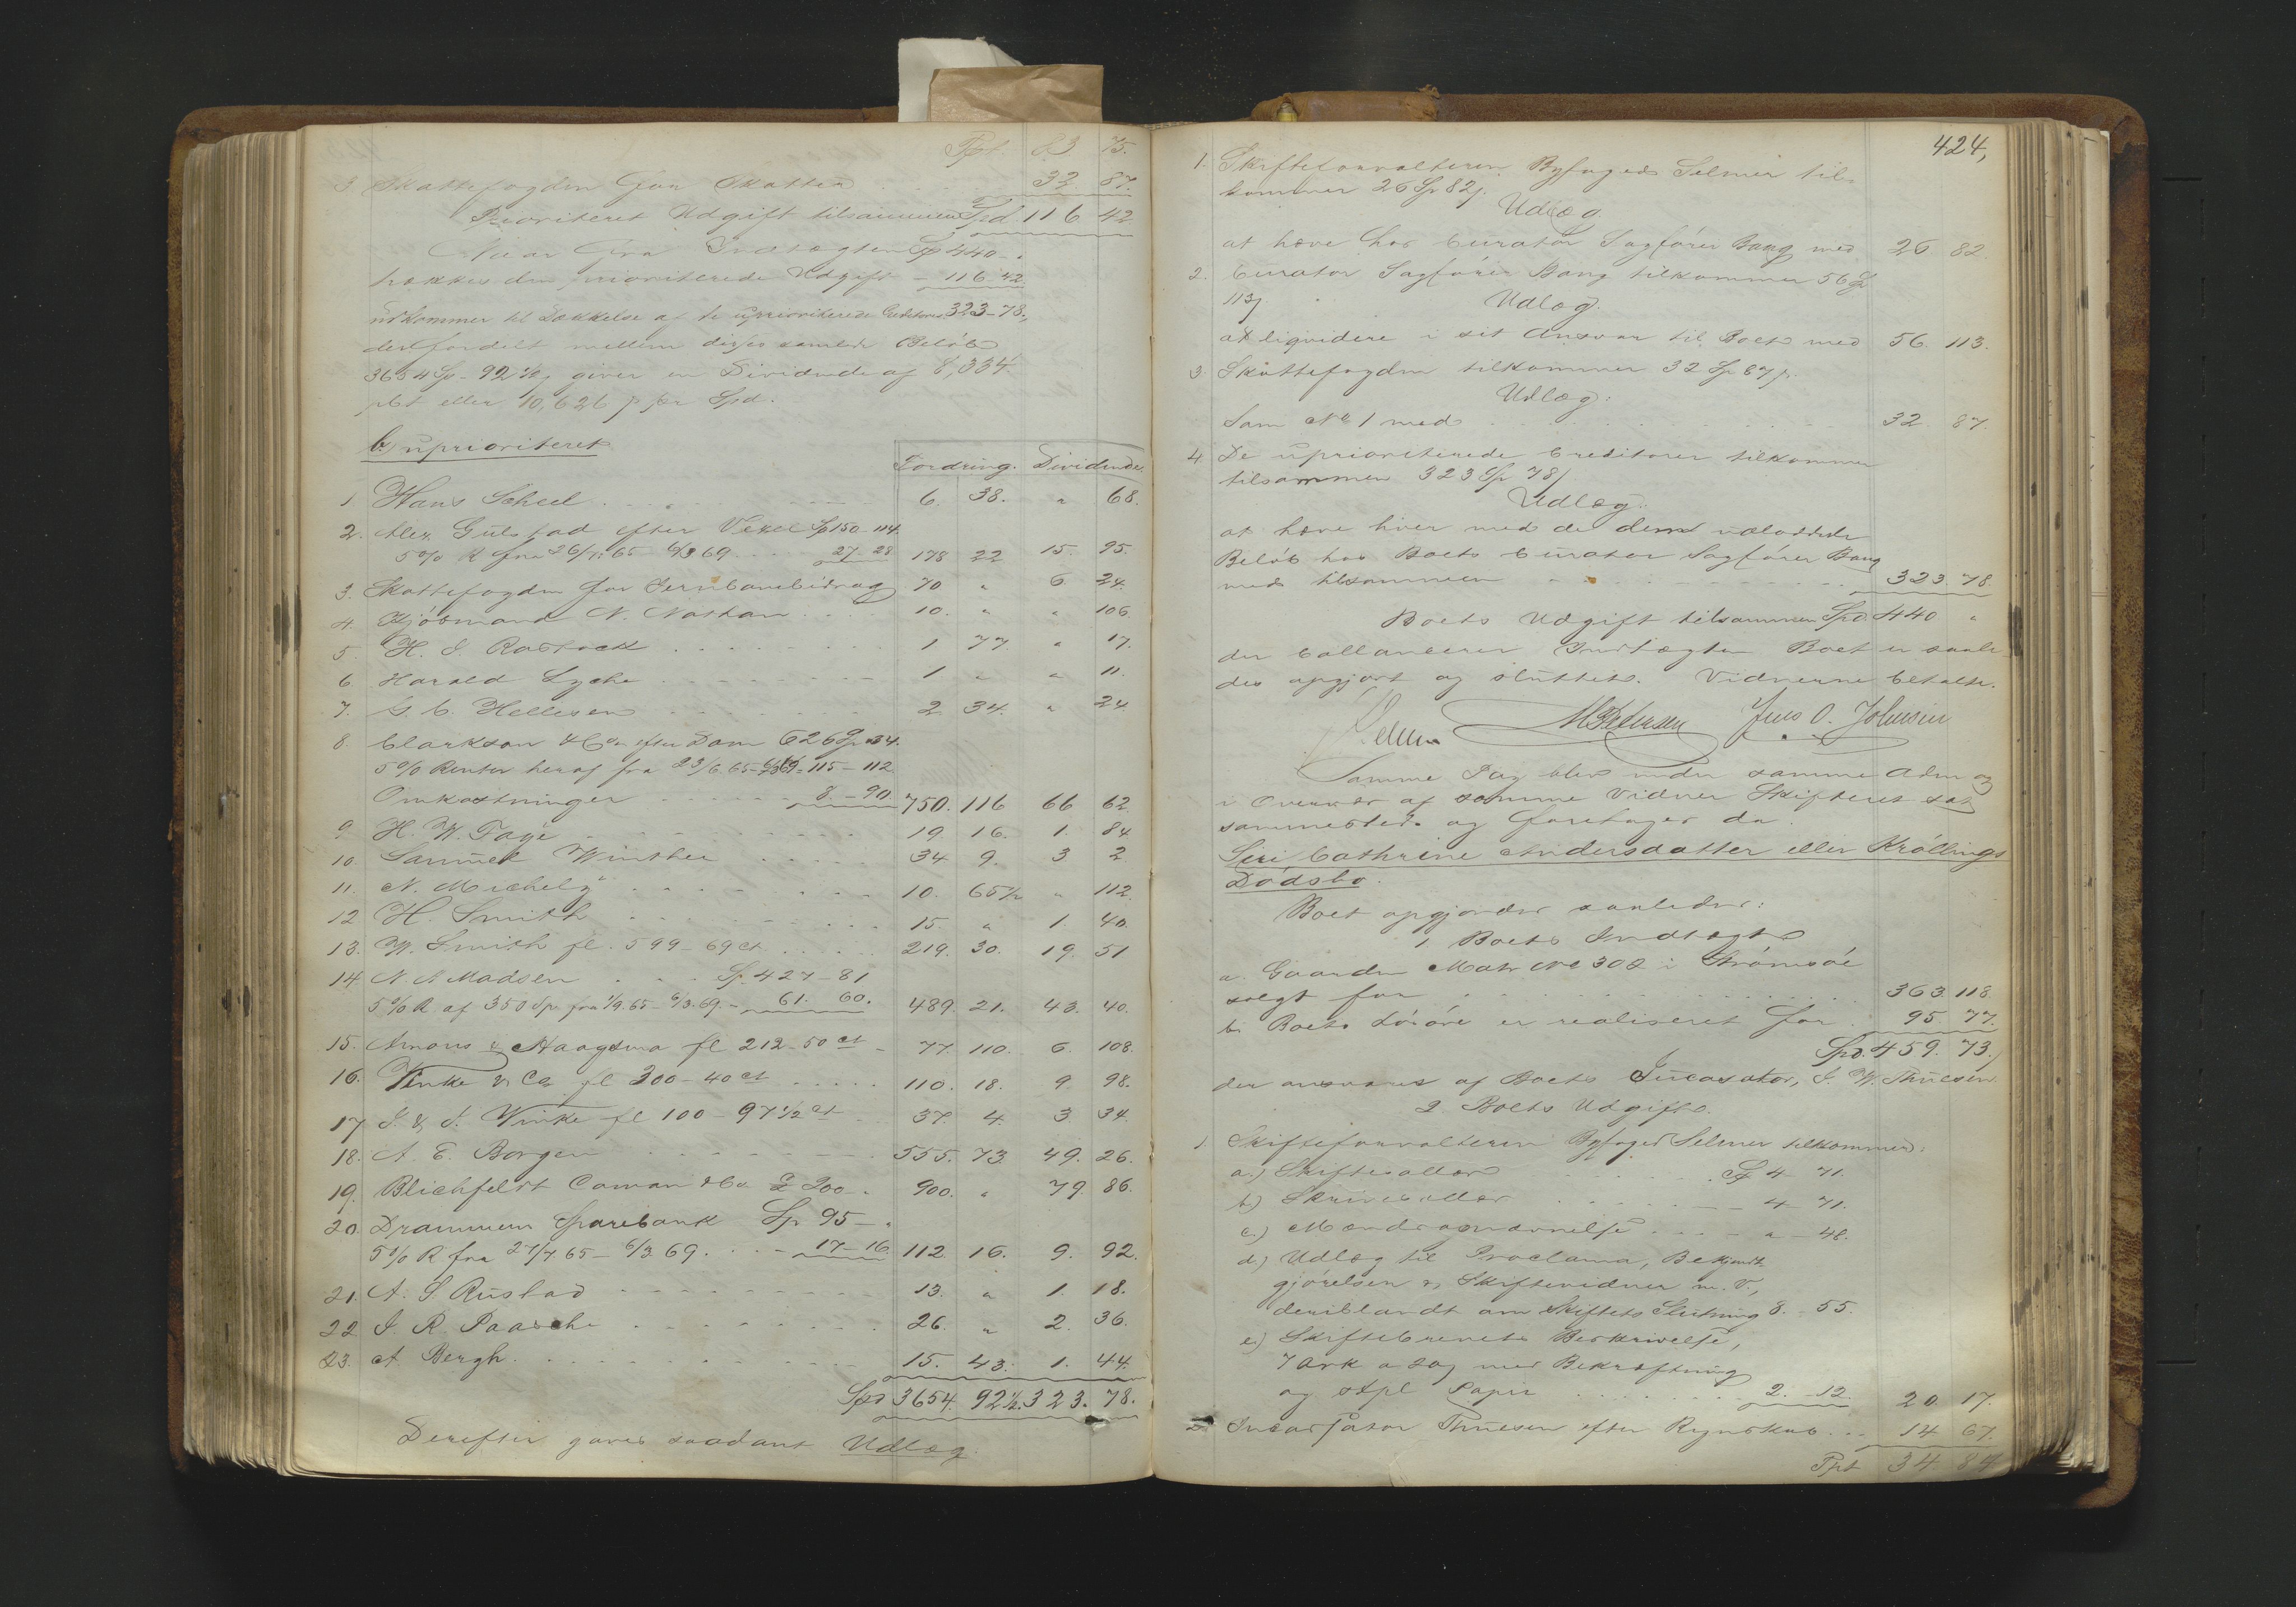 Tpt. 83 75.
3 Skattefogden for Skatter . . . . 32 87.
Prioriteret Udgift tilsammen Spd. 116 42
Naar fra Indtægten Sp 440 - "
trækkes den prioriterede Udgift - 116 42
udkommer til Dækkelse af de uprioriterede Creditorer 323-78,
der fordelt mellem disses samlede Beløb
3654 Sp - 92½ giver en Dividende af 8,334
pCt eller 10,626 p pr Spd.
b) uprioriteret
Fordring. Dividende.
1 Hans Scheel . . . 6. 38. " 68.
2. Alex. Gulstad efter Vexel Sp 150. 114.
5% R fra 26/7 65 - 6/3 69 . . . 27 28 178 22 15. 95.
3. Skattefogden for Jernbanebidrag 70 " 6. 24.
4. Kjøbmand N. Nathan . . . 10. " " 106.
5. H. J. Rostock . . . 1 77. " 17.
6. Harald Lyche . . . 1 " " 11.
7. G. C. Hellesen . . . 2 34. " 24.
8. Clarkson & Co efter Dom 626 Sp 34.
5% Renter heraf fra 23/6 65 - 6/3 69 - 115 - 112
Omkostninger . . . 8. - 90. 750. 116 66 62
9. H. W. Faye . . . 19. 16. 1. 84
10. Samuel Winther . . . 34 9. 3 2.
11. N. Michely . . . 10. 65½ " 112.
12 H. Smith . . . 15. " 1. 40.
13. W. Smith fl. 599 - 69 ct . . . 219. 30. 19. 51
14. N. N Madsen . . . Sp. 427 - 81
5% R. af 350 Sp. fra 1/9. 65 - 6/3. 69. - 61. 60. 489. 21. 43. 40.
15. Amons & Haagsma fl 212 - 50 ct - 77. 110. 6. 108.
16. Vinke & Co fl 300 - 40 ct . . . 110. 18. 9. 98.
17 J. & S. Vinke fl 100 - 97½ ct . . 37. 4. 3. 34.
18. A. E. Borgen . . . 555. 73. 49. 26.
19. Blichfeldt Coman & Co £ 200 - " 900. " 79. 86.
20. Drammens Sparebank Sp 95 - "
5% R fra 27/7. 65 - 6/3 69. . . - 17 - 16 112. 16. 9. 92.
21. A. S Rustad . . . 13. " 1. 18.
22 J. R. Paasche . . . 26. " 2. 36.
23. A. Bergh . . . 15. 43. 1. 44.
Spd 3654. 92½. 323. 78.
Derefter gaves saadant Udlæg.
424,
1. Skifteforvalteren Byfoged Selmer til-
kommer 26 Sp 82 p.
Udlæg.
at hæve hos Curator Sagfører Bang med 26 82.
2. Curator Sagfører Bang tilkommer 56 Sp
113 p
Udlæg.
at liqvidere i sit Ansvar til Boet med 56. 113.
3. Skattefogden tilkommer 32 Sp 87 p.
Udlæg.
Som No 1 med . . . 32 87.
4. De uprioriterede Creditorer tilkommer
tilsammen 323 Sp 78 p
Udlæg.
at hæve hver med de dem udloddede
Beløb hos Boets Curator Sagfører Bang
med tilsammen . . . 323. 78.
Boets Udgift tilsammen Spd. 440 "
der ballancerer Indtægten Boet er saale-
des opgjort og sluttet. Vidnerne betalte.
Selmer M Pedersen Jens O. Johnsen
Samme Dag blev under samme Adm og
i Overvær af samme Vidner Skifteret sat
sammesteds og foretoges da.
Siri Cathrine Andersdatter eller Krøllings
Dødsbo.
Boet opgjordes saaledes:
1, Boets Indtægt
a. Gaarden Matr No 308 i Strømsøe
solgt for . . . 363. 118.
b. Boets Løsøre er realiseret for . 95. 77.
Spd. 459. 73.
der ansvares af Boets Incasator, J. W. Thuesen
2 Boets Udgift.
1. Skifteforvalteren Byfoged Selmer tilkommer:
a.) Skiftesallær . . . Sp 4 - 71.
b) Skriversallær . . . - 4 - 71.
c.) Mændsopnævnelse . . . - " - 48.
d.) Udlæg til Proclama, Bekjendt-
gjørelsen & Skiftevidner m. v.,
deriblandt om Skiftets Slutning 8. - 55.
e.) Skiftebrevets Beskrivelse,
7 Ark a 20 p med Bekræftning
og stpl Papir . . . 2. - 12. 20. 17.
2. Incassator Thuesen efter Regnskab . . . 14 67.
Tpt 34. 84